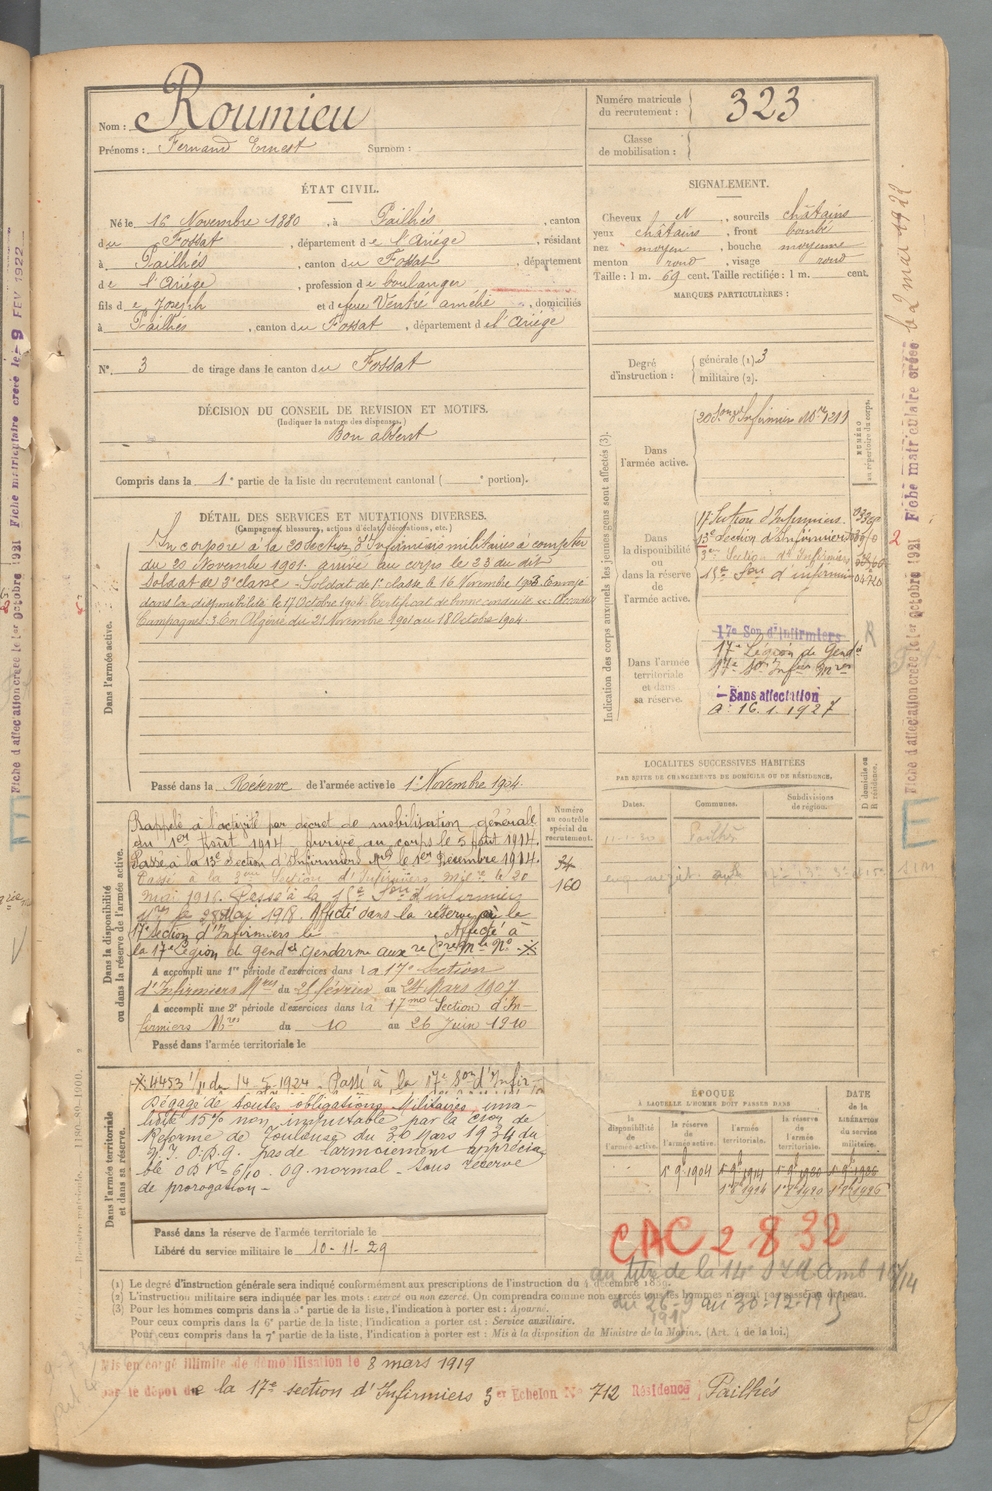 Nom : Roumieu
Prénoms : Fernand Ernest Surnom :
Numéro matricule du recrutement : 323
Classe de mobilisation :
ÉTAT CIVIL.
Né le 16 Novembre 1880, à Pailhés, canton
du Fossat, département de l'Ariège, résidant
à Pailhés, canton du Fossat, département
de l'Ariège, profession de boulanger
fils de Joseph et de feue Ventré amélie, domiciliés
à Pailhés, canton du Fossat, département de l'Ariège
N° 3 de tirage dans le canton du Fossat
SIGNALEMENT.
Cheveux N, sourcils châtains
yeux châtains, front bombé
nez moyen, bouche moyenne
menton rond, visage rond
Taille : 1 m. 69 cent. Taille rectifiée : 1 m. cent.
MARQUES PARTICULIÈRES :
Degré d'instruction : générale (1) 3
militaire (2).
DÉCISION DU CONSEIL DE REVISION ET MOTIFS.
(Indiquer la nature des dispenses.)
Bon absent
Compris dans la 1e partie de la liste du recrutement cantonal ( e portion).
DÉTAIL DES SERVICES ET MUTATIONS DIVERSES.
(Campagnes, blessures, actions d'éclat, décorations, etc.)
Dans l'armée active.
Incorporé à la 20 section d'Infirmiers militaires à compter
du 20 Novembre 1901. arrivé au corps le 23 du dit
Soldat de 2e classe - Soldat de 1e classe le 16 Novembre 1903. Envoyé
dans la disponibilité le 17 Octobre 1904. Certificat de bonne conduite "Accordé"
Campagnes : En Algérie du 21 Novembre 1901 au 18 Octobre 1904.
Passé dans la Réserve de l'armée active le 1e Novembre 1904.
Indication des corps auxquels les jeunes gens sont affectés (3).
NUMÉRO au répertoire du corps.
Dans l'armée active.
Dans la disponibilité ou dans la réserve de l'armée active.
17 Section d'Infirmiers.
13e Section d'Infirmiers
3me Section d'Infirmiers
15e Son d'infirmiers
Dans l'armée territoriale et dans sa réserve.
17e Son d'Infirmiers
17e Légion de Gendie
17e Son Infirs Mres
Sans affectation
a : 16.1.1927
LOCALITÉS SUCCESSIVES HABITÉES
PAR SUITE DE CHANGEMENTS DE DOMICILE OU DE RÉSIDENCE.
Dates. Communes. Subdivisions de région. D domicile ou R résidence.
Dans la disponibilité ou dans la réserve de l'armée active.
Numéro au contrôle spécial du recrutement.
34
160
Rappelé à l'activité par décret de mobilisation générale
du 1er Août 1914 arrivé au corps le 5 Août 1914.
Passé à la 13e Section d'Infirmiers Mres le 1er Décembre 1914.
Passé à la 3me Section d'Infirmiers Milres le 20
mai 1916. Passé à la 15e Son d'infirmiers
Mres le 28 Mai 1918. Affecté dans la réserve à la
17e section d'Infirmiers le Affecté à
la 17e Légion de Gendie Gendarme auxre
A accompli une 1re période d'exercices dans la 17e Section
d'Infirmiers Mres du 25 février au 24 Mars 1907
A accompli une 2e période d'exercices dans la 17me Section d'In-
firmiers Mres du 10 au 26 Juin 1910
Passé dans l'armée territoriale le
Dans l'armée territoriale et dans sa réserve.
4453 1/11 du 14-5-1924 - Passé à la 17e Son d'Infir-
Dégagé de toutes obligations Militaires, inva-
lidité 15% non imputable par la Cion de
Réforme de Toulouse du 30 Mars 1934 du
pas de larmoiement apprécia-
ble OD V= 6/10. OG normal - sous réserve
de prorogation -
Passé dans la réserve de l'armée territoriale le
Libéré du service militaire le 10-11-29
ÉPOQUE
À LAQUELLE L'HOMME DOIT PASSER DANS
la disponibilité de l'armée active.
la réserve de l'armée active.
l'armée territoriale.
la réserve de l'armée territoriale.
DATE de la LIBÉRATION du service militaire.
1e 9b 1904
CAC 2 8 32
au titre de la 14e
du 26-9 au 30-12-1915
(1) Le degré d'instruction générale sera indiqué conformément aux prescriptions de l'instruction du 4 décembre 1889.
(2) L'instruction militaire sera indiquée par les mots : exercé ou non exercé. On comprendra comme non exercés tous les hommes n'ayant pas passé au drapeau.
(3) Pour les hommes compris dans la 5e partie de la liste, l'indication à porter est : Ajourné.
Pour ceux compris dans la 6e partie de la liste, l'indication à porter est : Service auxiliaire.
Pour ceux compris dans la 7e partie de la liste, l'indication à porter est : Mis à la disposition du Ministre de la Marine. (Art. 4 de la loi.)
Mis en congé illimité de démobilisation le 8 mars 1919
par le dépôt de la 17e section d'Infirmiers 3er Echelon N° 712 Résidence Pailhés
Fiche d'affectation créée le 1er Octobre 1921 Fiche matriculaire créée le 2 mai 1922
Fiche d'affectation créée le 1er Octobre 1921 Fiche matriculaire créée le 9 FEV 1922